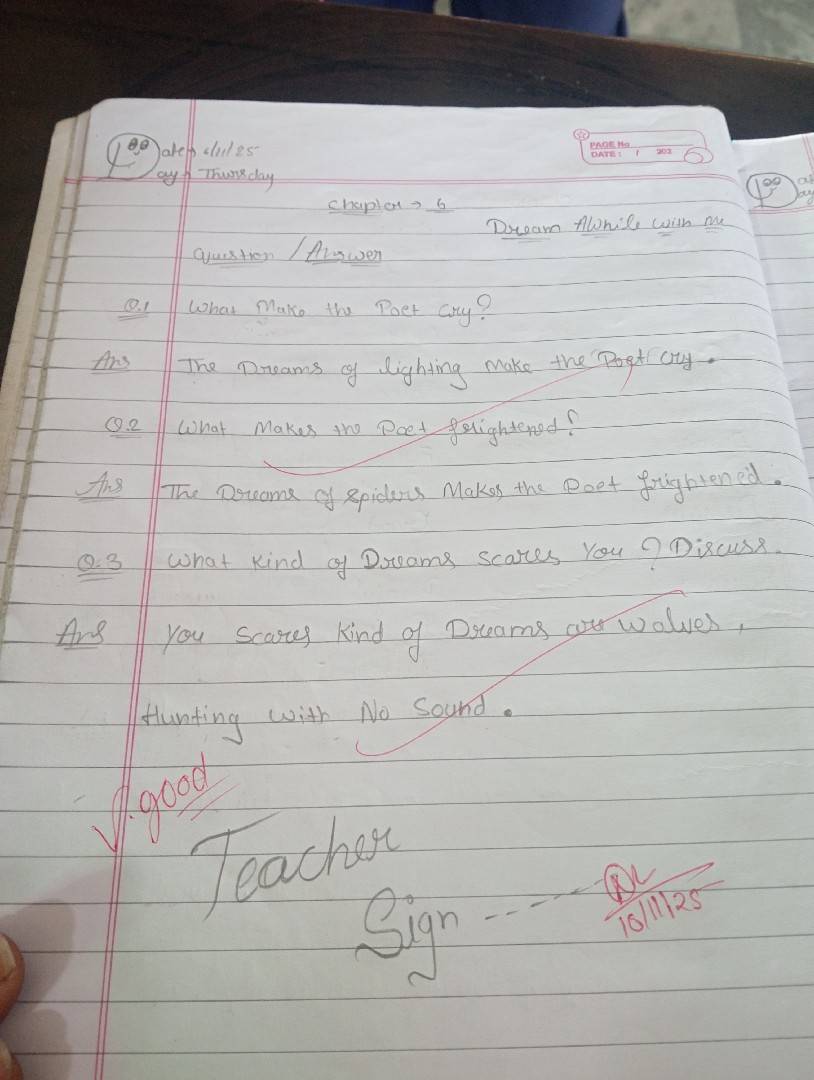 Date → 6/11/25
PAGE No
DATE: / 202
Day → Thursday
Chapter → 6
Dream AWhile with me
Question / Answer
Q.1 What Make the Poet cry?
Ans The Dreams of lighting Make the Poet cry.
Q.2 What Makes the Poet frightened?
Ans The Dreams of spiders Makes the Poet frightened.
Q.3 What Kind of Dreams scares You? Discuss.
Ans You Scares Kind of Dreams are walves,
Hunting with No Sound.
V.good
Teacher
Sign
10/11/25